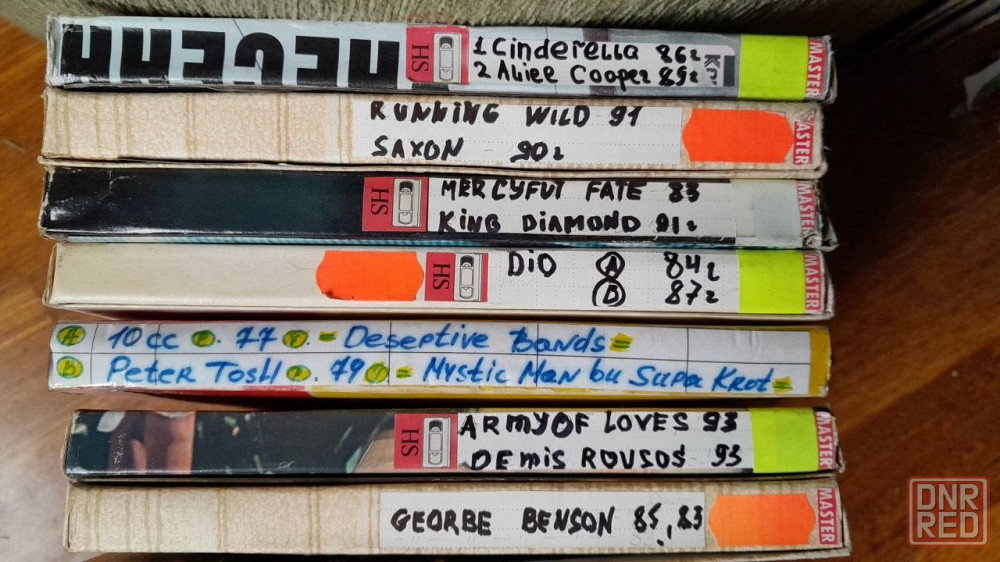 HS
1 Cinderella 86г
2 Aliee Cooper 89г
MASTER
RUNNING WILD 91
SAXON 90г
ASTER
HS
MERCYFUT FATE 83
KING DIAMOND 91г
MASTER
HS
DIO A 84г
B 87г
MASTER
A 10 cc P. 77 г. = Deseptive Bands =
B Peter Tosh P. 79 г = Mystic Man bu Supa Krot =
HS
ARMY OF LOVES 93
DEMIS ROUSOS 93
MASTER
GEORBE BENSON 85, 83
MASTER
DNR
RED